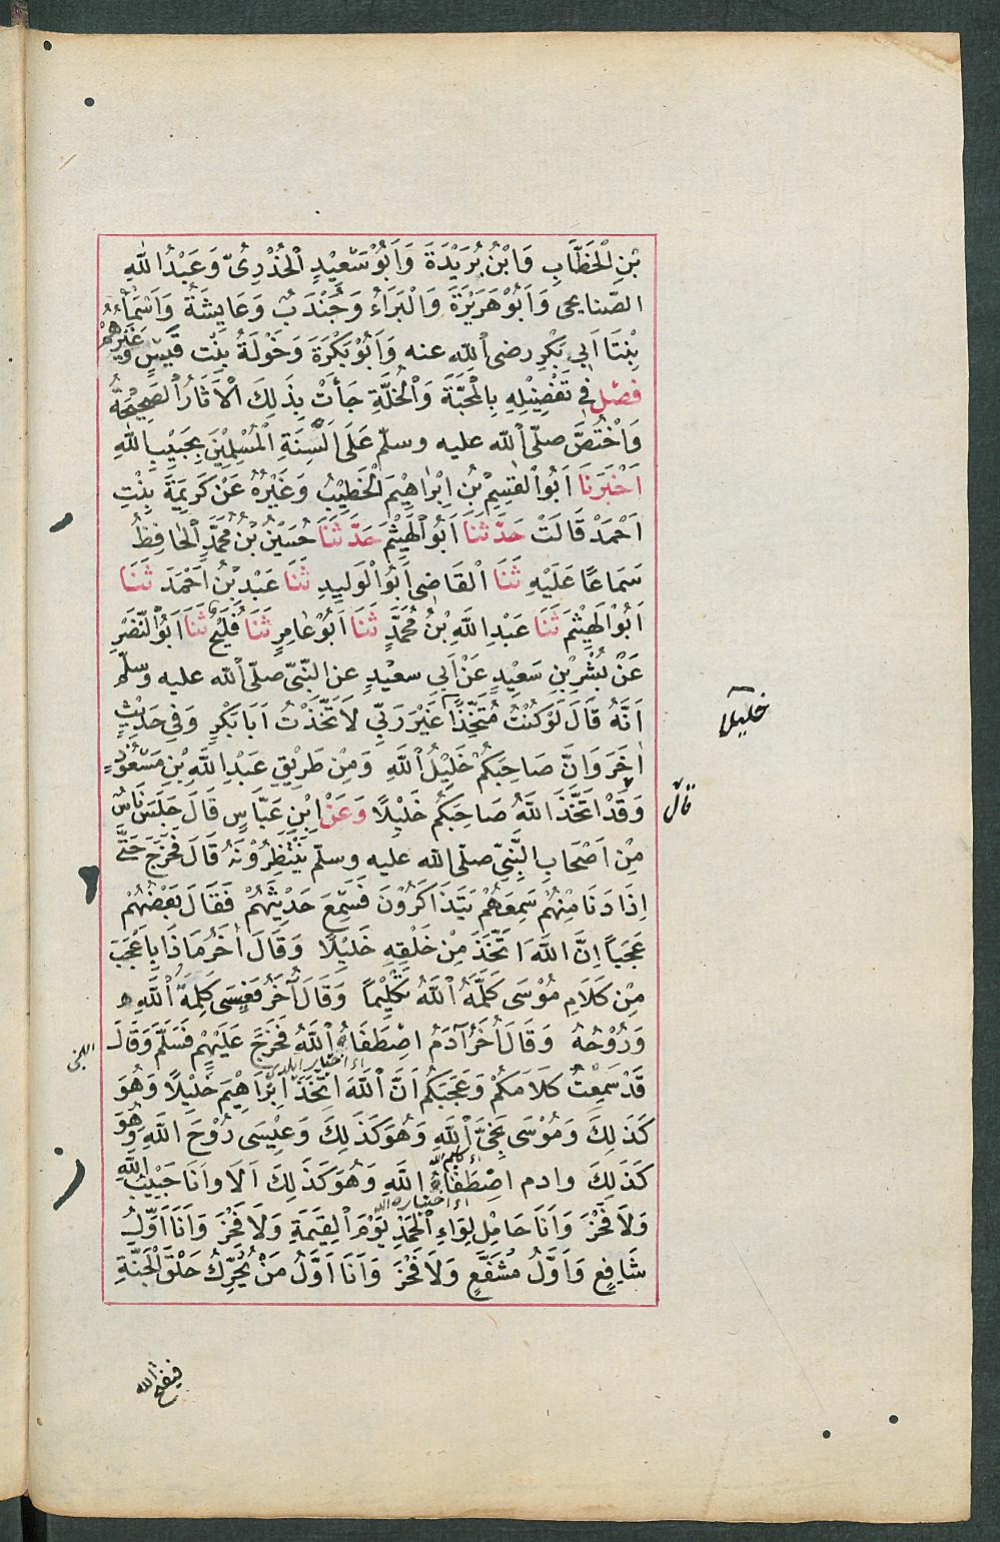 بْنِ الْخَطَّابِ وَابْنُ بُرَيْدَةَ وَاَبُوْ سَعِيْدٍ الْخُذْرِىُّ وَعَبْدُ اللهِ
الصّنابحى وَاَبُوْهَرَيْرَةَ وَالْبَرَاءُ وَجُنْدَبُ وَعَايِشَةُ وَاَسْمَاءُ
بِنْتَا اَبِى بَكْرٍ رضى الله عنه وَاَبُوْ بَكْرَةَ وَخَوْلَةُ بِنْت قَيْسٍ وَغَيْرُهُمْ
فصْل فِى تَفْضِيْلِهِ بِالْمَحَبَّةَ وَالْخُلَّةِ جَأَتْ بِذَلِكَ الْاَثَارُ الصَحِيْحَةُ
وَاخْتُصَّ صلّى الله عليه وسلّم عَلَى اَلْسِنَةِ الْمُسْلِمِيْنَ بِحَبِيْبِ اللهِ
اَخْبَرَنَا اَبُوالْقٰسِمِ بْنِ اِبْرٰاهِيْمَ الْخَطِيْبُ وَغَيْرُهُ عَنْ كَرِيْمَةَ بِنْتِ
اَحْمَدْ قَالَتْ حَدَّثنَا اَبُو الْهَيْثَمْ حَدَّثنَا حُسَيْنُ بْنُ مُحَمَّدٍ الْحَافِظُ
سَمَاعًا عَلَيْهِ ثَنَا الْقَاضِى اَبُو الْوَلِيدِ ثَنَا عَبْدُ بْنُ اَحْمَدَ ثَنَا
اَبُو الْهَيْثَمْ ثَنَا عَبْدِ اللهِ بْنُ مُحَمَّدٍ ثَنَا اَبُوْ عٰامِرٍ ثَنَا فُلَيْحٌ ثَنَا اَبُو النَّضْرِ
عَنْ بُشْرِ بْنِ سَعِيْدٍ عَنْ اَبِى سعيْدٍ عن النَّبىّ صلّى الله عليه وسلّم
اَنَّهُ قَالَ لَوْ كُنْتُ مُتَّخِذًا غَيْرَ رَبِّى لَاتَّخَذْتُ اَبَا بَكْرٍ وَفِى حَدِيْثٍ
خليلًا
اٰخَرَ وَاِنَّ صَاحِبَكُمْ خَلِيْلُ اللهِ وَمِنْ طَرِيْقِ عَبْدِ اللهِ بْنِ مَسْعُوْدٍ
وَقَدْ اتَّخَذَ اللهُ صَاحِبَكُمْ خَلِيْلًا وَعَنْ ابْنِ عَبَّاسٍ قَالَ جَلَسَ نَاسٌ
قال
مِنْ اَصْحَابِ النَّبِىّ صلّى الله عليه وسلّم يَنْتَظِرُوْنَهُ قَالَ فَخَرَجَ حَتَّى
اِذَا دَنَا مِنْهُمْ سَمِعَهُمْ يَتَذَاكَرُوْنَ فَسَمِعَ حَدِيْثَهُمْ فَقَالَ بَعْضُهُمْ
عَجَباً اِنَّ اللهَ اتَّخَذَ مِنْ خَلْقِهِ خَلِيْلًا وَقَالَ اٰخَرُ مَاذَا بِاَعْجَبَ
مِنْ كَلَامِ مُوْسَى كَلَّمَهُ اللهُ تَكْلِيْمًا وَقَالَ آخَرُ فَعِيْسَى كَلِمَةُ اللهِ
وَرُوْحُهُ وَقَالَ اٰخَرُ آدَمُ اصْطَفَاهُ اللهُ فَخَرَجَ عَلَيْهِمْ فَسَلَّمَ وَقَالَ
قَدْ سَمِعْتُ كَلَامَكُمْ وَعَجَبَكُمْ اَنَّ اللهَ اتَّخَذَ اِبْرَاهِيْمَ خَلِيْلًا وَهُوَ
كَذَلِكَ وَمُوْسَى نَجِىُّ اللهِ وَهُوَ كَذَلِكَ وَعِيْسَى رُوْحَ اللهِ وَهُوَ
كَذَلِكَ وادم اصْطَفَاهُ اللهِ وَهُوَ كَذَلِكَ اَلَا وانَا حَبِيْبُ اللهِ
وَلَا فَخْرَ وَاَنَا حَامِل لِوَاءِ الْحَمْدِ يَوْمَ الْقِيٰمَةِ وَلَا فَخْرَ وَاَنَا اَوَّلُ
شَافِعٍ وَاَوَّلُ مُشَفَّعٍ وَلَا فَخْرَ وَاَنَا اَوَّلُ مَنْ يُحَرِّكُ حَلْقَ الْجَنَّةِ
فيفتح الله